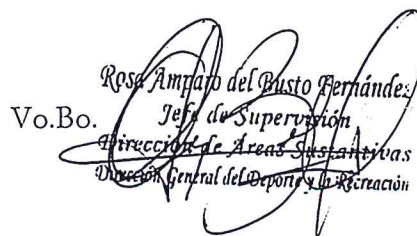 Rosa Amparo del Busto Fernández
Vo.Bo. Jefe de Supervisión
Dirección de Areas Sustantivas
Dirección General del Deporte y la Recreación